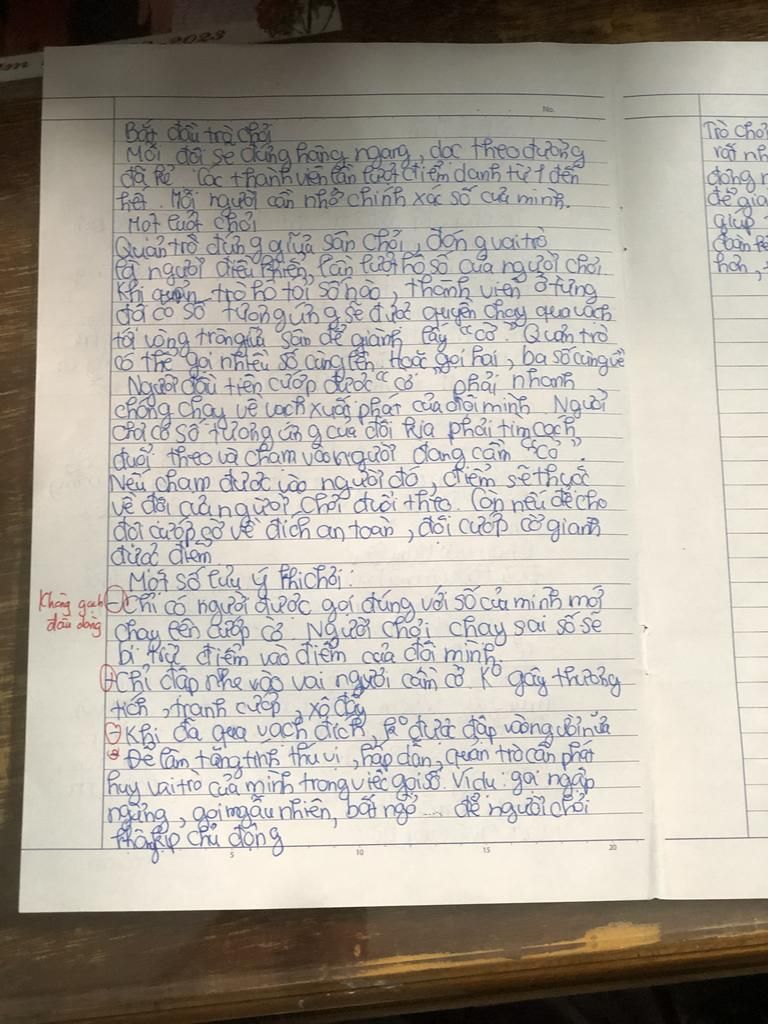 2023
No.
Bắt đầu trò chơi
Mỗi đội sẽ đứng hàng ngang, dọc theo đường
đã kẻ. Các thành viên lần lượt điểm danh từ 1 đến
hết. Mỗi người cần nhớ chính xác số của mình.
Một lượt chơi
Quản trò đứng giữa sân chơi, đóng vai trò
là người điều khiển, lần lượt hô số của người chơi
Khi quản trò hô tới số nào, thành viên ở từng
đội có số tương ứng sẽ được quyền chạy qua vạch
tới vòng tròn giữa sân để giành lấy "cờ". Quản trò
có thể gọi nhiều số cùng lên. Hoặc gọi hai, ba số cùng về
Người đầu tiên cướp được "cờ phải nhanh
chóng chạy về vạch xuất phát của đội mình. Người
chơi có số tương ứng của đội kia phải tìm cách
đuổi theo và chạm vào người đang cầm "cờ".
Nếu chạm được vào người đó, điểm sẽ thuộc
về đội của người chơi đuổi theo. Còn nếu để cho
đội cướp cờ về đích an toàn, đội cướp cờ giành
được điểm
Một số lưu ý khi chơi:
Không gạch
đầu dòng
- Chỉ có người được gọi đúng với số của mình mới
chạy lên cướp cờ. Người chơi chạy sai số sẽ
bị trừ điểm vào điểm của đội mình.
- Chỉ đập nhẹ vào vai người cầm cờ. Ko gây thương
tích, tranh cướp, xô đẩy
- Khi đã qua vạch đích, ko được đập vào người nữa
Để làm tăng tính thú vị, hấp dẫn, quản trò cần phát
huy vai trò của mình trong việc gọi số. Ví dụ: gọi ngập
ngừng, gọi ngẫu nhiên, bất ngờ ... để người chơi
không kịp chủ động
5 10 15 20
Trò chơ
rất nh
động n
để gia
giúp
đoàn kế
hơn,